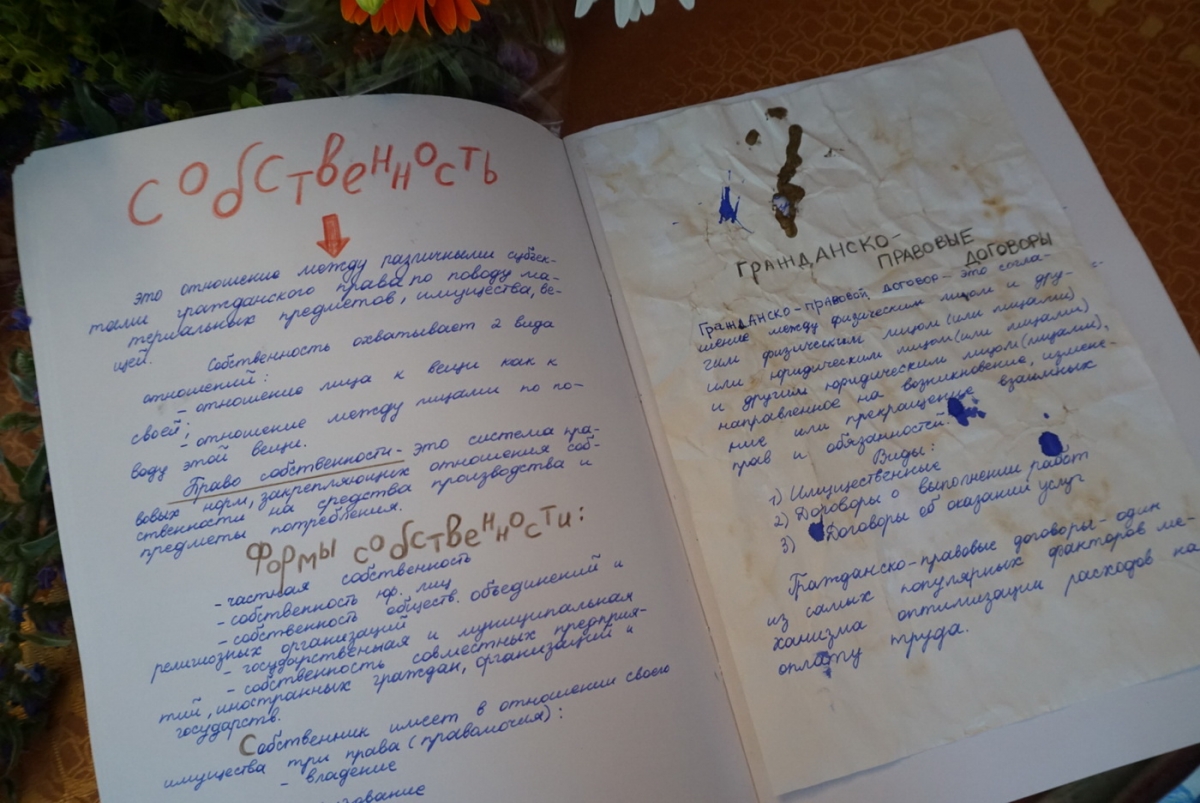 Собственность
это отношение между различными субъек-
тами гражданского права по поводу ма-
териальных предметов, имущества, ве-
щей.
Собственность охватывает 2 вида
отношений:
- отношение лица к вещи как к
своей;
- отношение между лицами по по-
воду этой вещи.
Право собственности - это система пра-
вовых норм, закрепляющих отношения соб-
ственности на средства производства и
предметы потребления.
Формы собственности:
- частная собственность
- собственность юр. лиц
- собственность обществ. объединений и
религиозных организаций
- государственная и муниципальная
- собственность совместных предприя-
тий, иностранных граждан, организаций и
государств.
Собственник имеет в отношении своего
имущества три права (правомочия):
- владение
Гражданско-
правовые
договоры
Гражданско-правовой договор - это согла-
шение между физическим лицом и дру-
гим физическим лицом (или лицами)
или юридическим лицом (или лицами)
и другим юридическим лицом (лицами),
направленное на возникновение, измене-
ние или прекращение взаимных
прав и обязанностей.
Виды:
1) Имущественные
2) Договоры о выполнении работ
3) Договоры об оказании услуг
Гражданско-правовые договоры - один
из самых популярных факторов ме-
ханизма оптимизации расходов на
оплату труда.